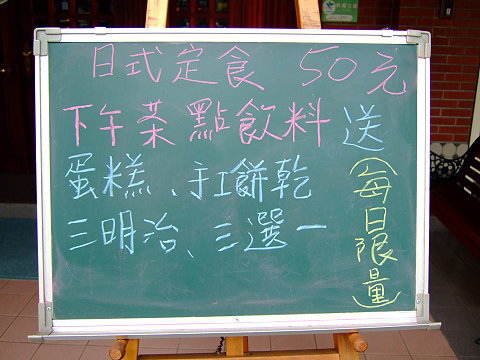 日式定食 50元
下午茶點飲料送
蛋糕、手工餅乾
三明治、三選一
(每日限量)